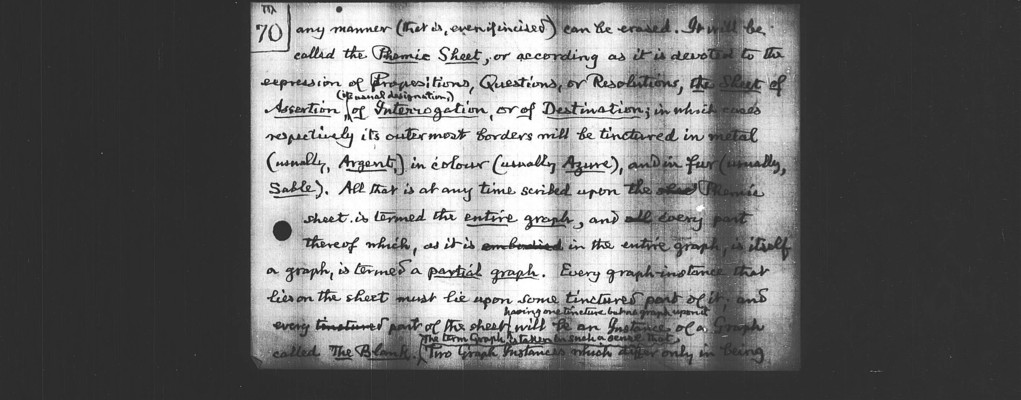 70
any manner (that is, even if incised) can be erased. It will be
called the Phemic Sheet, or according as it is devoted to the
expression of Propositions, Questions, or Resolutions, the Sheet of
(its usual designation,)
Assertion, of Interrogation, or of Destination; in which cases
respectively its outermost borders will be tinctured in metal
(usually, Argent,) in colour (usually Azure), and in fur (usually,
Sable). All that is at any time scribed upon the Phemic
sheet is termed the entire graph, and all every part
thereof which, as it is embodied in the entire graph, is itself
a graph, is termed a partial graph. Every graph-instance that
lies on the sheet must lie upon some tinctured part of it. and
having one tincture but no graph upon it
every tinctured part of the sheet will be an Instance of a Graph
The term Graph is taken in such a sense that
called The Blank. Two Graph Instances which differ only in being